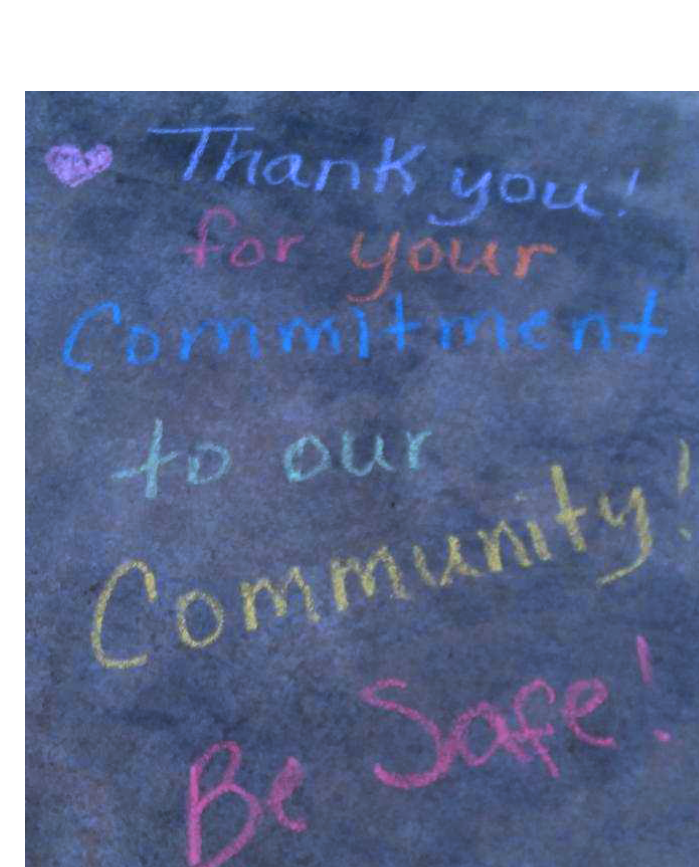 Thank you!
for your
Commitment
to our
Community!
Be Safe!